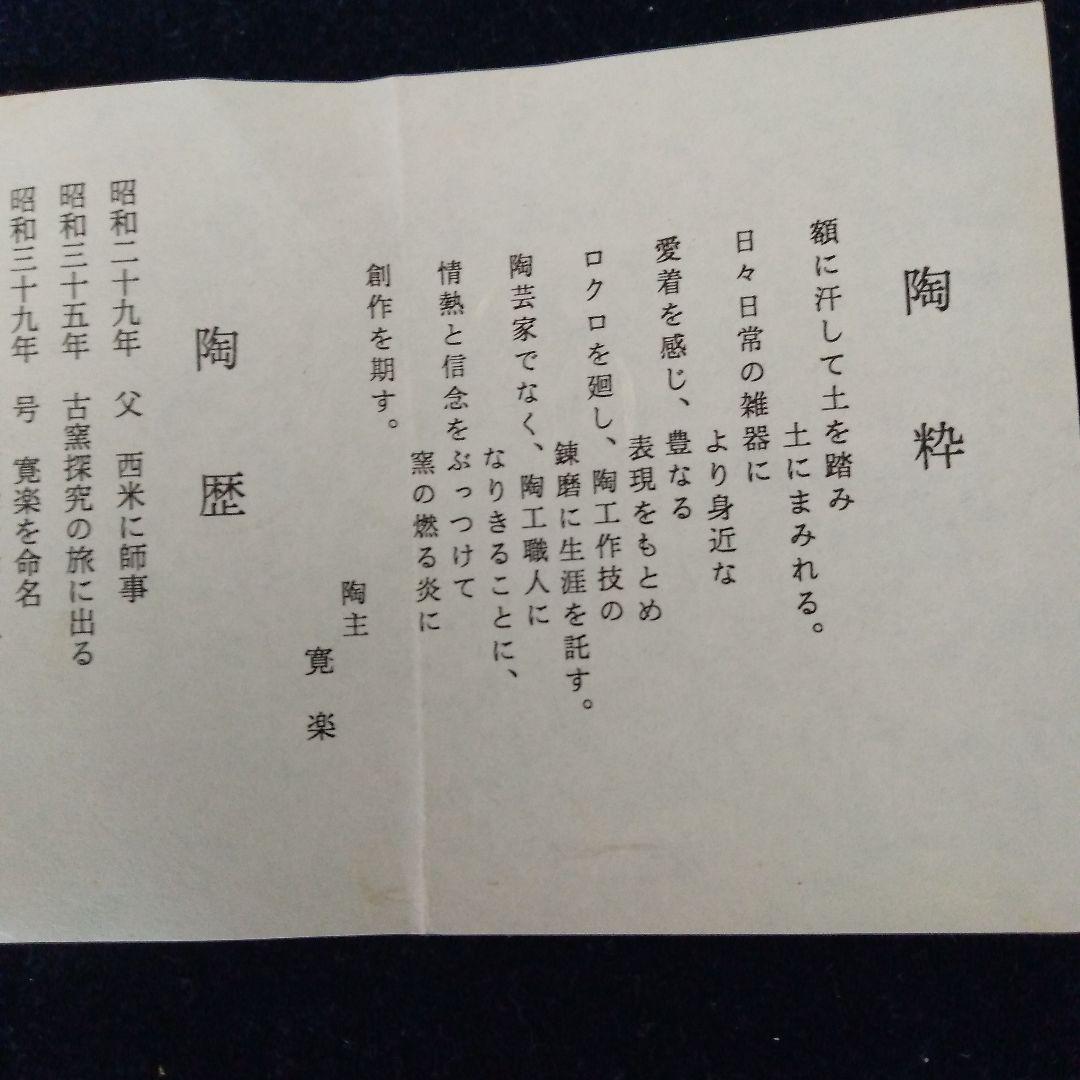 陶粋
額に汗して土を踏み
土にまみれる。
日々日常の雑器に
より身近な
愛着を感じ、豊なる
表現をもとめ
ロクロを廻し、陶工作技の
錬磨に生涯を託す。
陶芸家でなく、陶工職人に
なりきることに、
情熱と信念をぶっつけて
窯の燃る炎に
創作を期す。
陶主
寛楽
陶歴
昭和二十九年 父 西米に師事
昭和三十五年 古窯探究の旅に出る
昭和三十九年 号 寛楽を命名